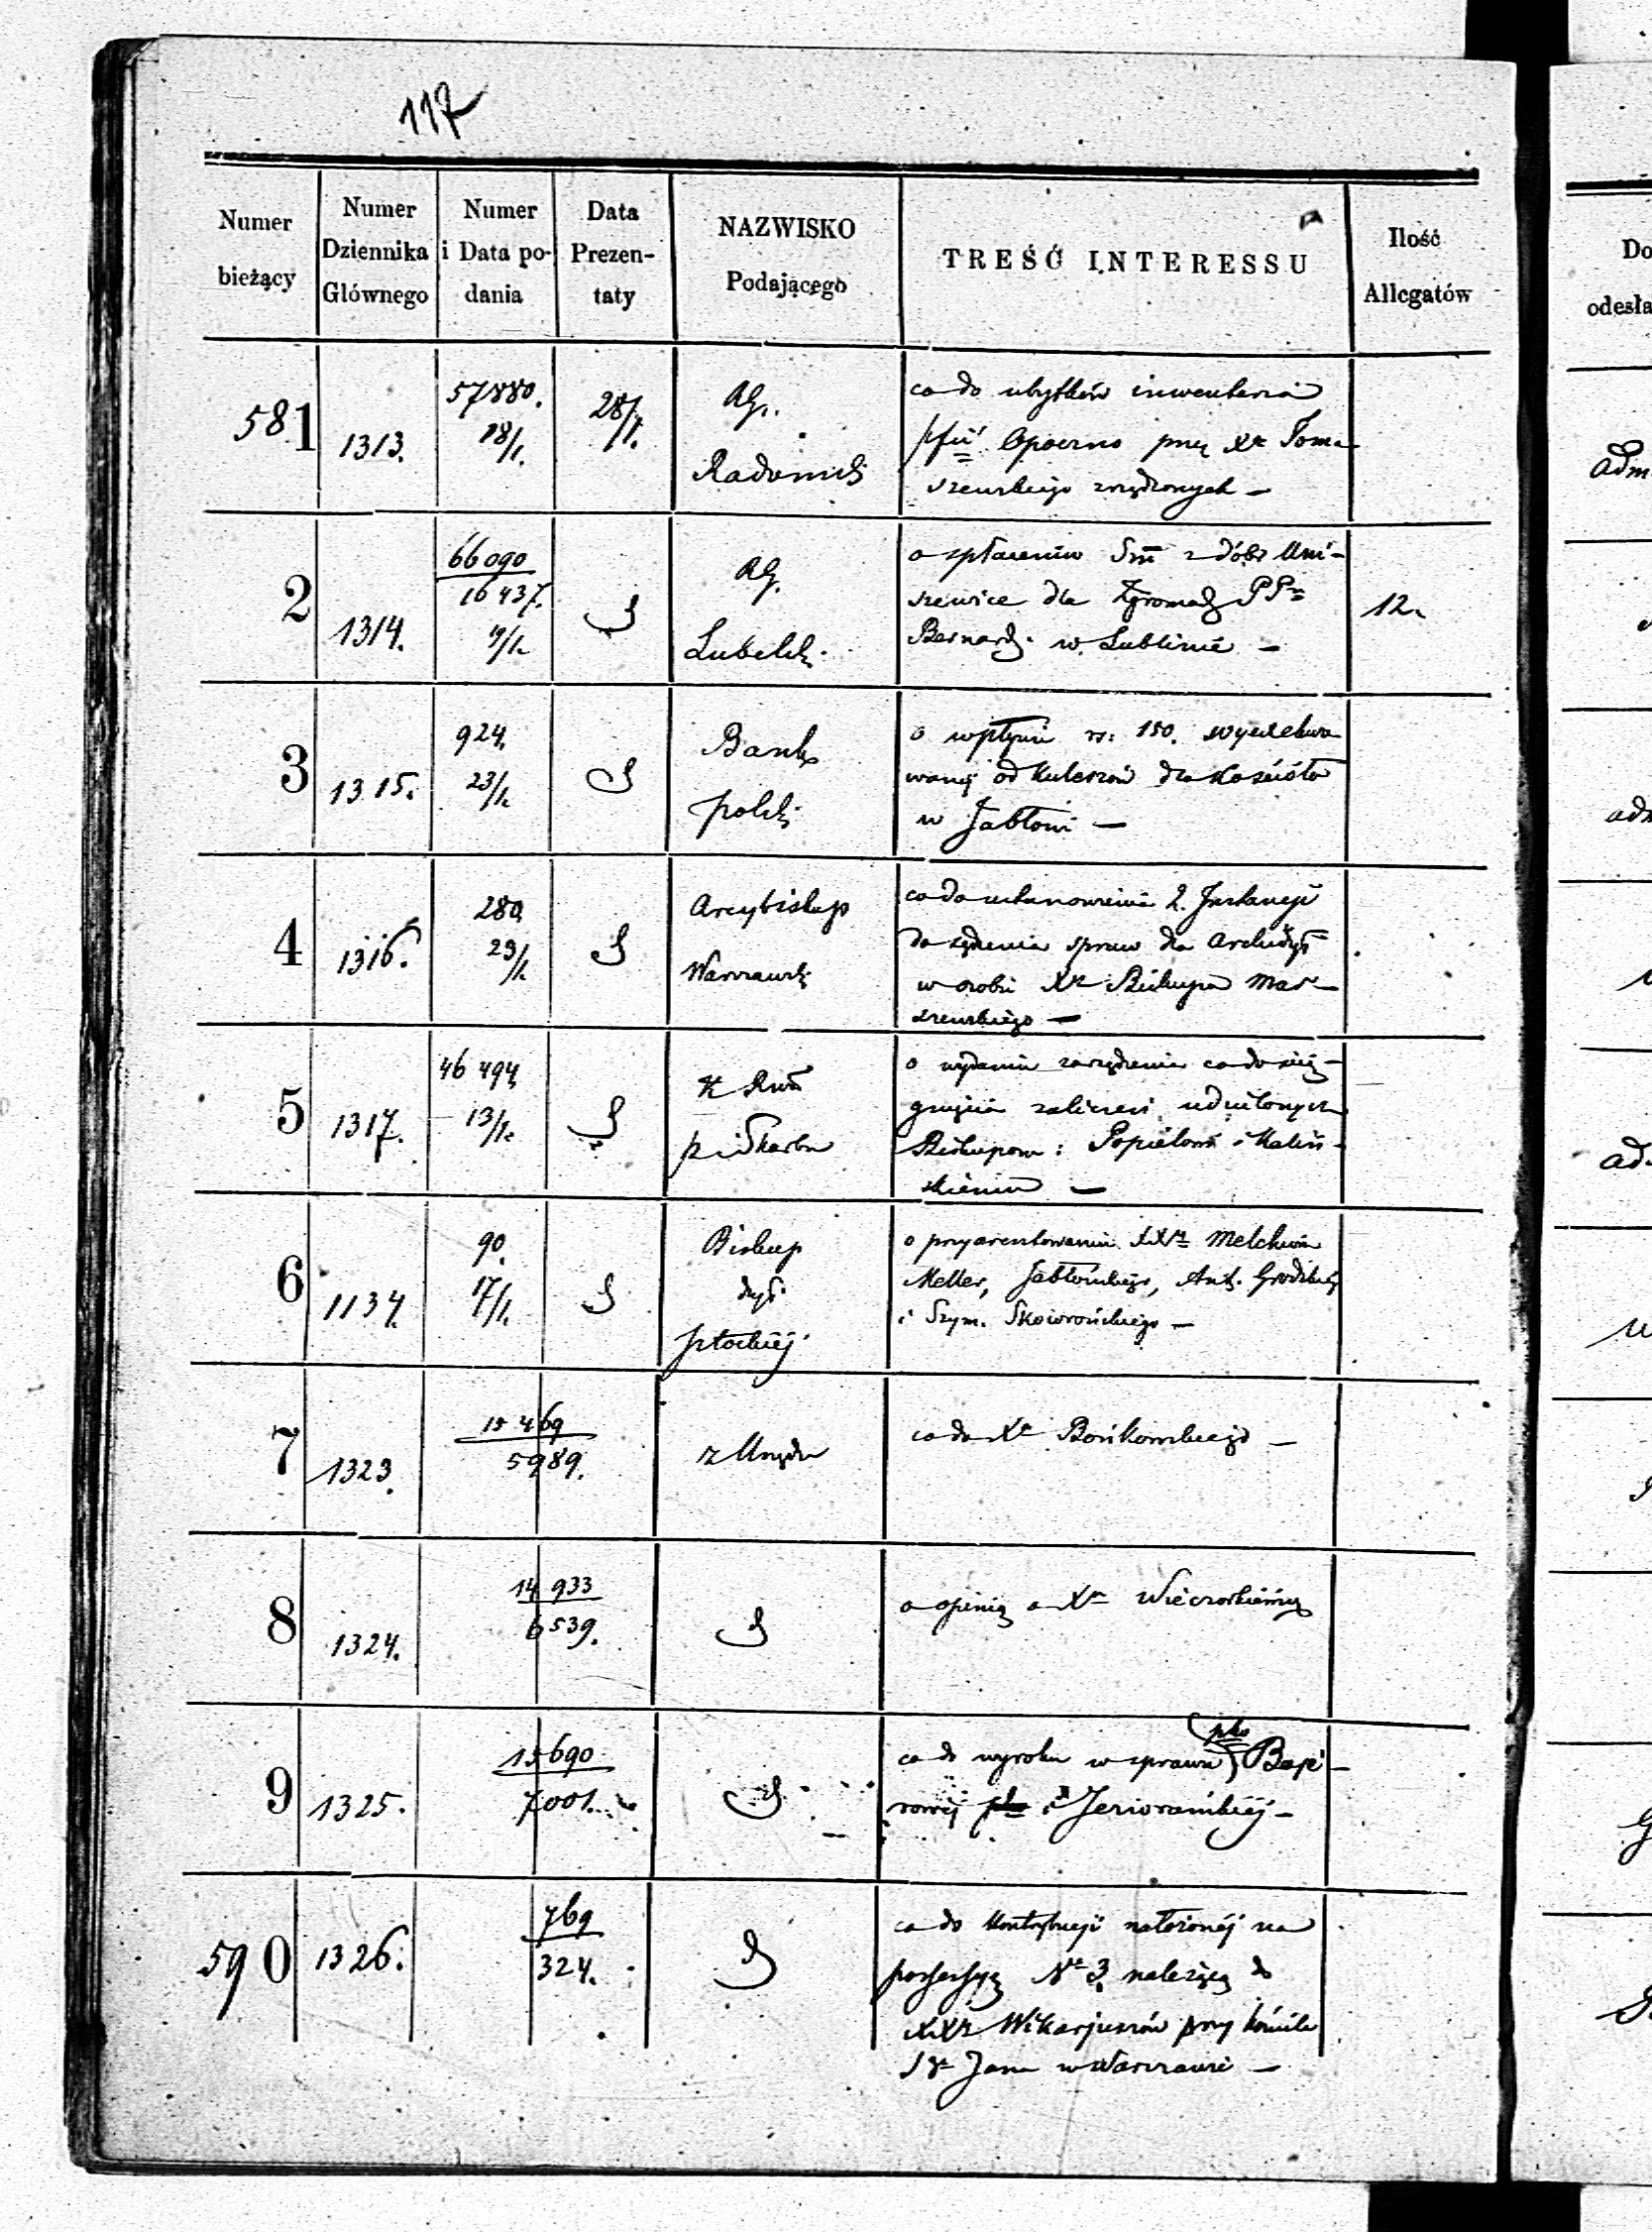 117
Numer bieżący
Numer Dziennika Głównego
Numer i Data podania
Data Prezentaty
NAZWISKO Podającego
TREŚĆ INTERESSU
Ilość Allegatów
581
1313.
57880.
18/1.
28/1.
RG.
Radomsk
co do ubytków inwentarza
Opoczno przez Xa Toma
szewskiego zrządzonych —
2
1314.
66090
16437.
RG.
Lubelsk.
o spłaceniu Sm z dóbr Uni-
szewice dla Zgromadz PP
Bernard. w Lublinie —
12.
3
1315.
924.
23/1.
Bank
polski
o wpłynie rs: 150. wyexekwo
wanej od Kuleszów dla Kościoła
w Jabłoni —
4
1316.
280
23/1.
Arcybiskup
Warszawsk
co do ustanowienia 2. Instancji
do sądzenia spraw dla Archidye
w osobie Xa Biskupa Mar-
szewskiego —
5
1317.
46494
13/1.
K Rwa
p i Skarbu
o wydanie zarządzenia co do ścią-
gnięcia zaliczeń udzielonych
Biskupom: Popielowi i Kaliń-
skiemu —
6
1134.
90.
17/1.
Biskup
dye.
płockiej
o przyaresztowaniu XXy Melchiora
Meller, Jabłońskiego, Ant. Grodzkieg
i Szym. Skowrońskiego —
7
1323.
15469
5989.
z Urzędu
co do Xa Bońkowskiego —
8
1324.
14933
6539.
o opinią o Xu Wieczorkiewiczu
9
1325.
15690
7001.
pko
co do wyroku w sprawie
rowej i Jeziorańskiej —
590
1326.
769
324.
co do Kontrybucji nałożonej na
possessyą No 3 należącą do
XXy Wikarjuszów przy kościele
Sgo Jana w Warszawie —
Do
odesła
Adm